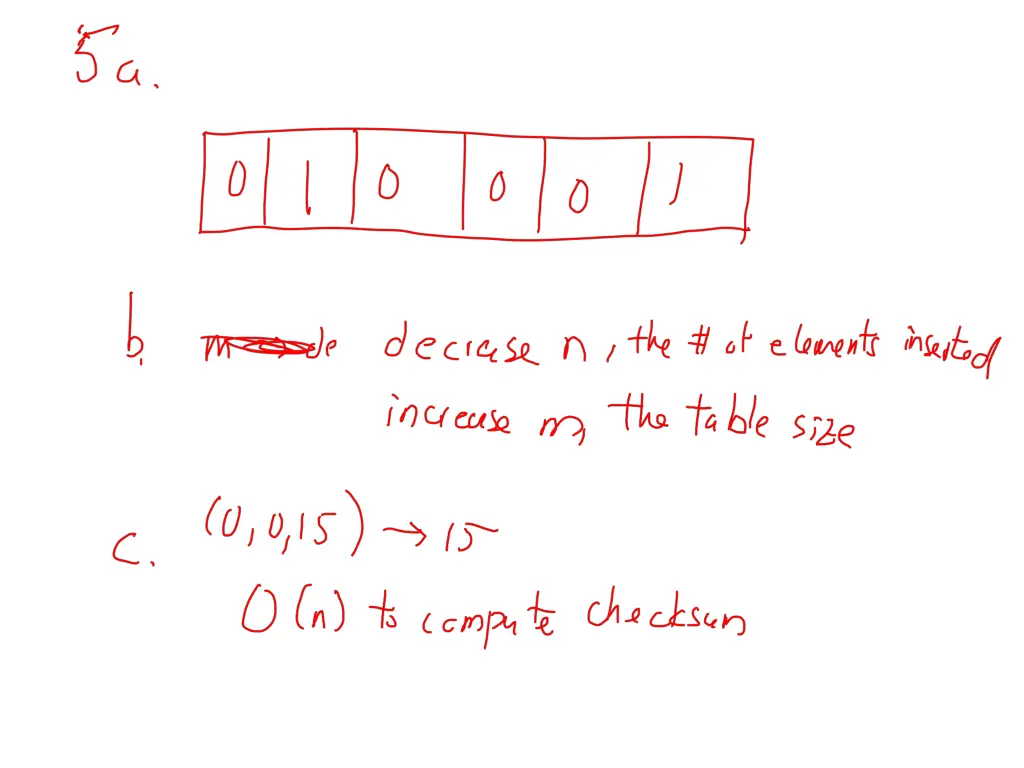 5a.
0 1 0 0 0 1
b. decrease n, the # of elements inserted
increase m, the table size
c. (0,0,15) → 15
O(n) to compute checksum